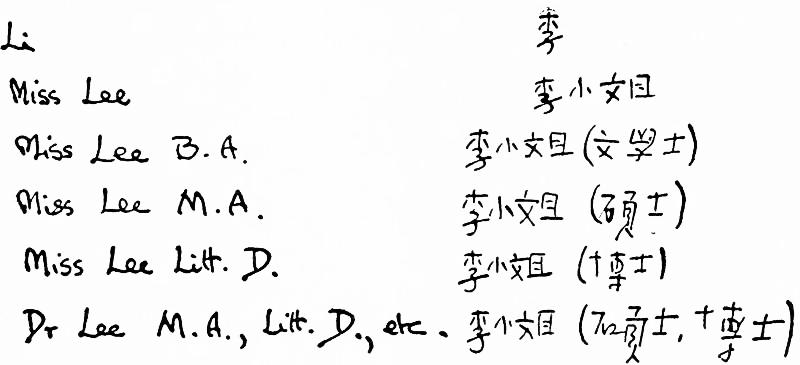 Li 李
Miss Lee 李小姐
Miss Lee B.A. 李小姐(文學士)
Miss Lee M.A. 李小姐 (碩士)
Miss Lee Litt. D. 李小姐 (博士)
Dr Lee M.A., Litt. D., etc. 李小姐 (碩士, 博士)